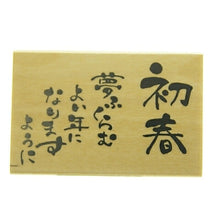 初春
夢ふくらむ
よい年に
なります
ように